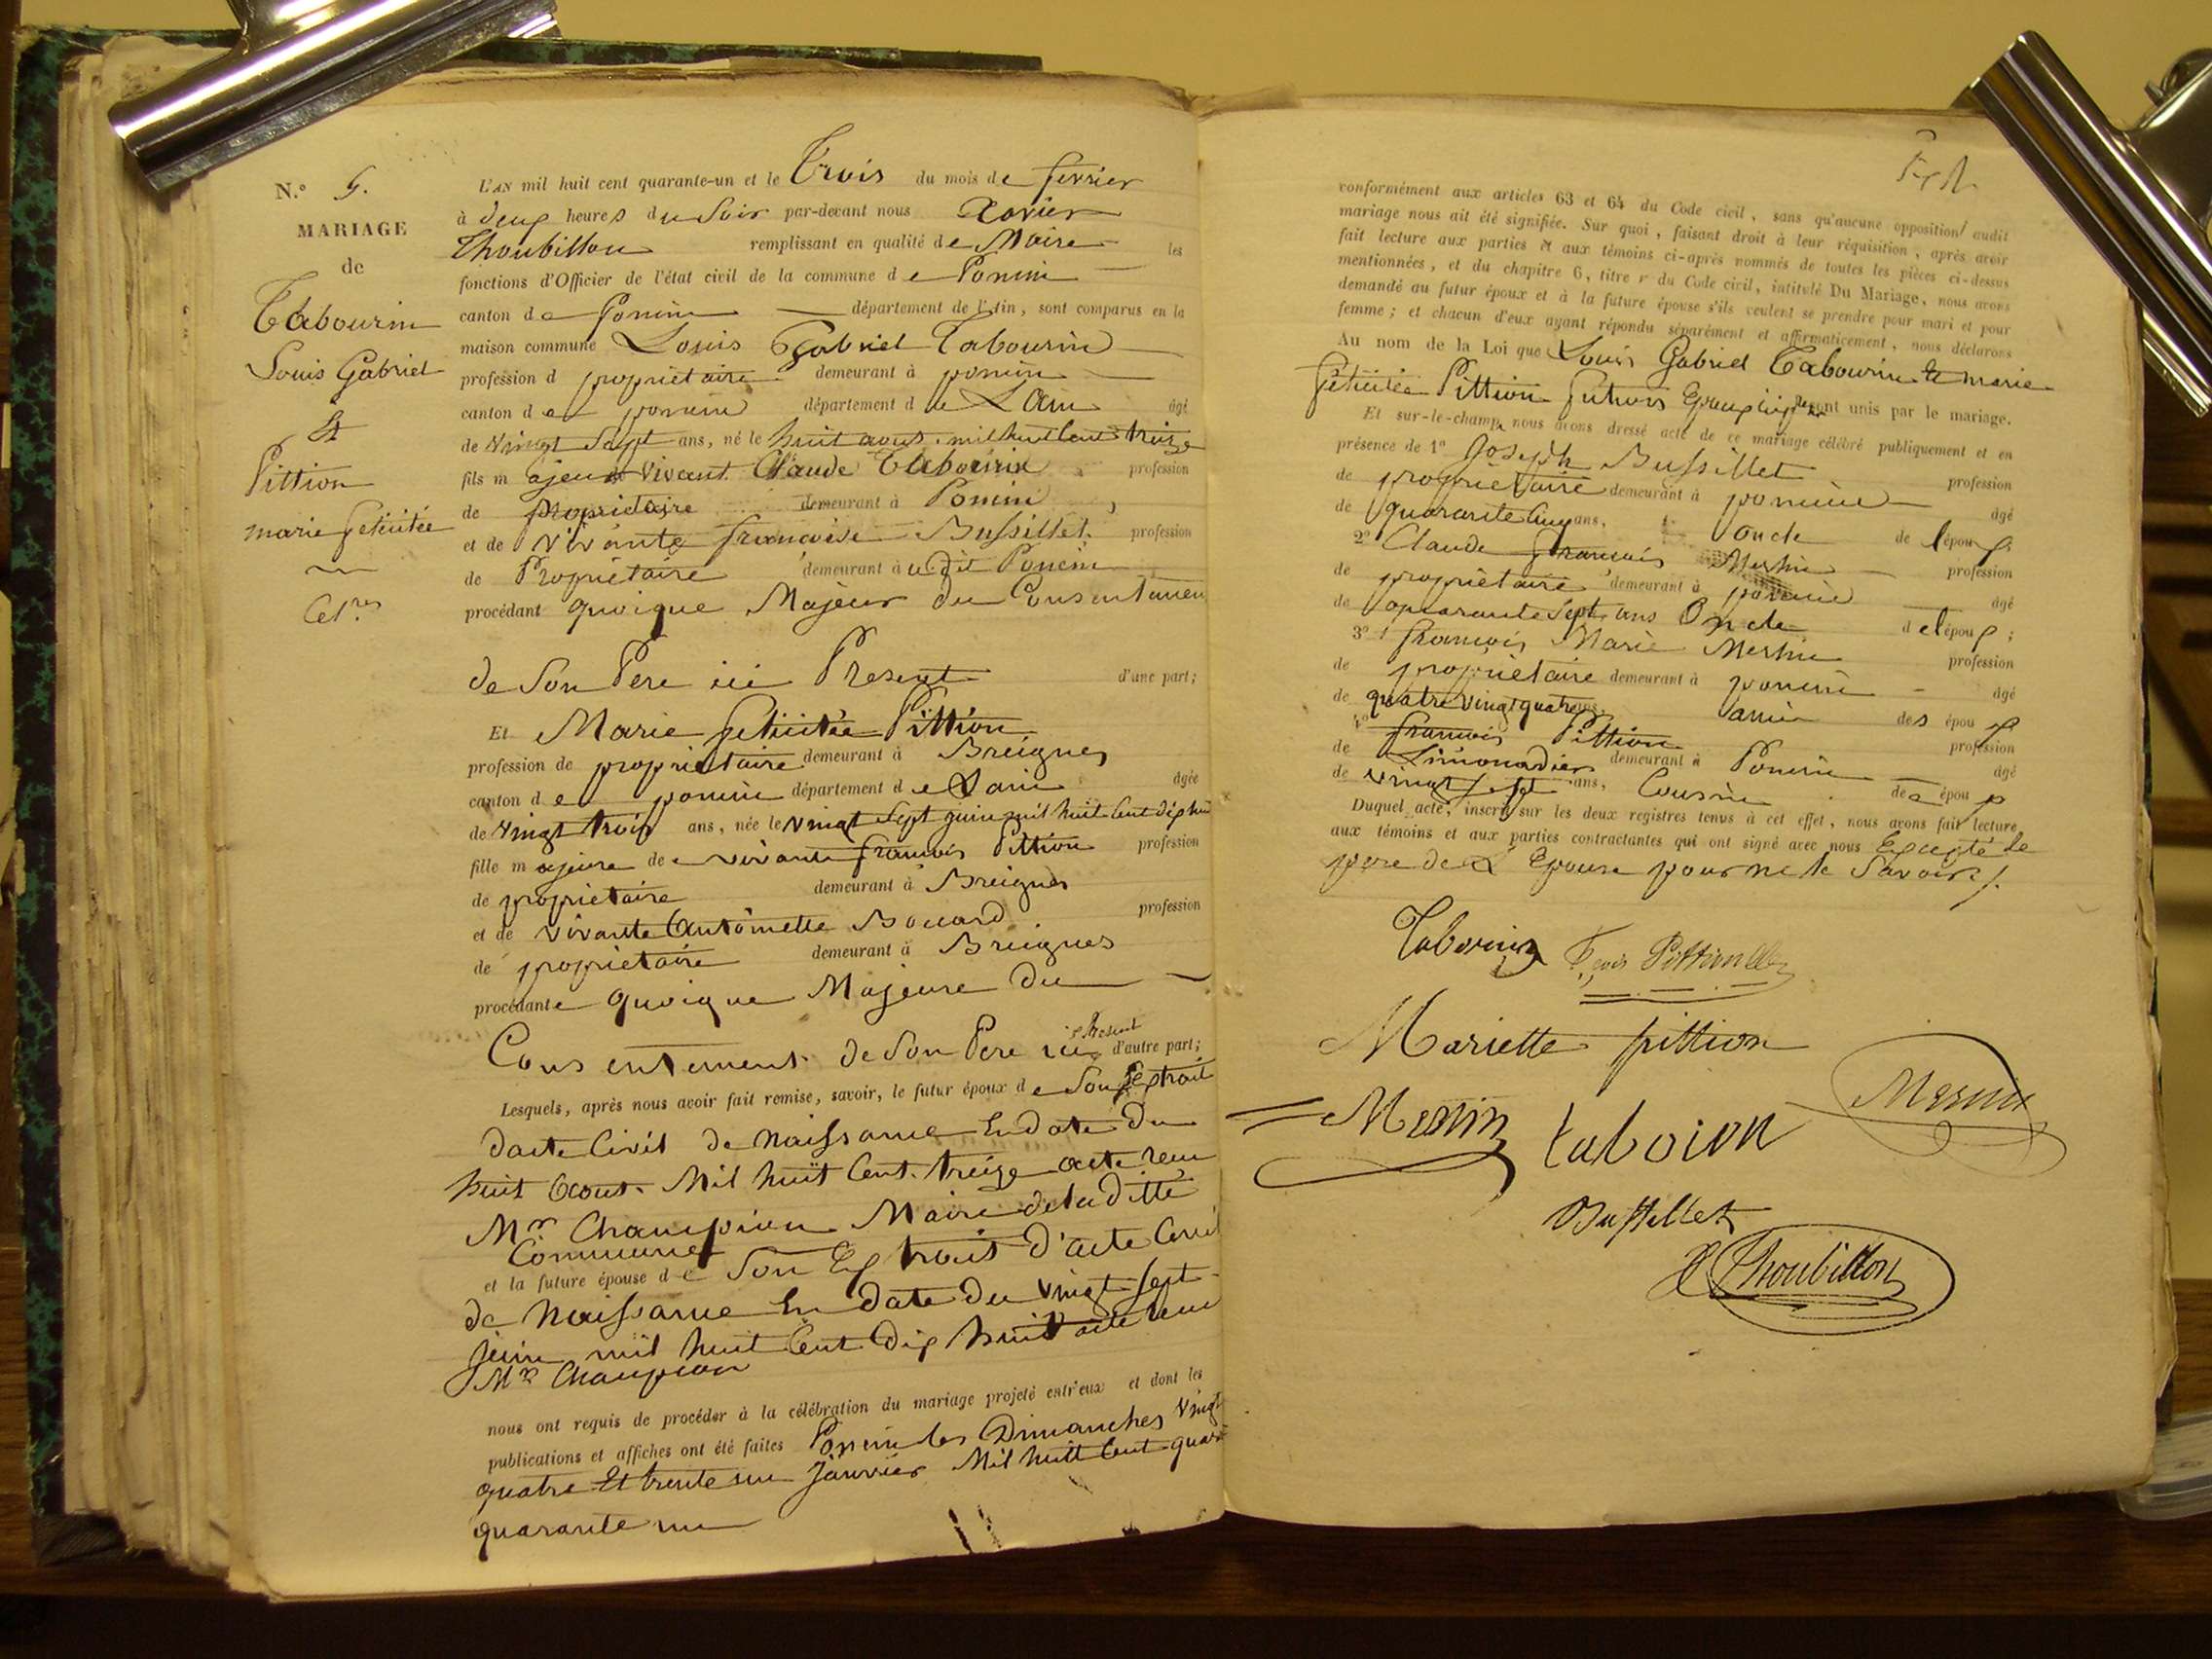 N.° 5.
MARIAGE
de
Tabourin
Louis Gabriel
Et
Pittion
marie felicitée
L'AN mil huit cent quarante-un et le Trois du mois de fevrier
à deux heures du Soir par-devant nous Xavier
Thoubillon remplissant en qualité de Maire les
fonctions d'Officier de l'état civil de la commune de Poncin
canton de Poncin département de l'Ain, sont comparus en la
maison commune Louis Gabriel Tabourin
profession d propriétaire demeurant à poncin
canton de poncin département de Lain âgé
de Vingt Sept ans, né le huit aout mil huit Cent treize
fils majeur de Vivant Claude Tabourin profession
de propriétaire demeurant à Poncin
et de vivante francoise Bussillet profession
de Propriétaire demeurant à udit Poncin
procédant quoique Majeur du Consentemen
de Son Pere ici Present d'une part;
Et Marie felicitée Pittion
profession de propriétaire demeurant à Breignes
canton de poncin département de Lain âgée
de Vingt trois ans, née le vingt Sept juin mil huit Cent dix hui
fille majeure de vivant francois Pittion profession
de propriétaire demeurant à Breignes
et de vivante Antoinette Bouard profession
de propriétaire demeurant à Breignes
procédante quoique Majeure du
Consentement de Son Pere ici Present d'autre part;
Lesquels, après nous avoir fait remise, savoir, le futur époux de Son Extrait
dacte Civil de Naissance En date du
huit Aout Mil huit Cent treize acte recu
Mr Champion Maire de la ditte
Commune
et la future épouse de Son Extrait d'acte Civil
de Naissance En date du Vingt Sept
juin mil huit Cent Dix huit acte recu
Mr Champion
nous ont requis de procéder à la célébration du mariage projeté entr'eux et dont les
publications et affiches ont été faites Poncin les Dimanches Vingt
quatre Et trente un Janvier Mil huit Cent quar
quarante un
conformément aux articles 63 et 64 du Code civil, sans qu'aucune opposition audit
mariage nous ait été signifiée. Sur quoi, faisant droit à leur réquisition, après avoir
fait lecture aux parties et aux témoins ci-après nommés de toutes les pièces ci-dessus
mentionnées, et du chapitre 6, titre v du Code civil, intitulé Du Mariage, nous avons
demandé au futur époux et à la future épouse s'ils veulent se prendre pour mari et pour
femme; et chacun d'eux ayant répondu séparément et affirmativement, nous déclarons
Au nom de la Loi que Louis Gabriel Tabourin Et marie
felicitée Pittion futurs Epoux sont unis par le mariage.
Et sur-le-champ nous avons dressé acte de ce mariage célébré publiquement et en
présence de 1° Joseph Bussillet profession
de propriétaire demeurant à poncin âgé
de quarante Cinq ans, oncle de lépoux
2° Claude francois Mermin profession
de propriétaire demeurant à poncin âgé
de quarante Sept ans Oncle de lépoux;
3° francois Marie Mermin profession
de propriétaire demeurant à poncin âgé
de quatre vingt quatre ans, ami des époux
4° francois Pittion profession
de Limonadier demeurant à Poncin âgé
de vingt Sept ans, Cousin de époux
Duquel acte, inscrit sur les deux registres tenus à cet effet, nous avons fait lecture
aux témoins et aux parties contractantes qui ont signé avec nous Excepté le
pere de L Epouse pour ne le Savoir
Tabourin
Mariette pittion
Tabouion
Bussillet
X Thoubillon